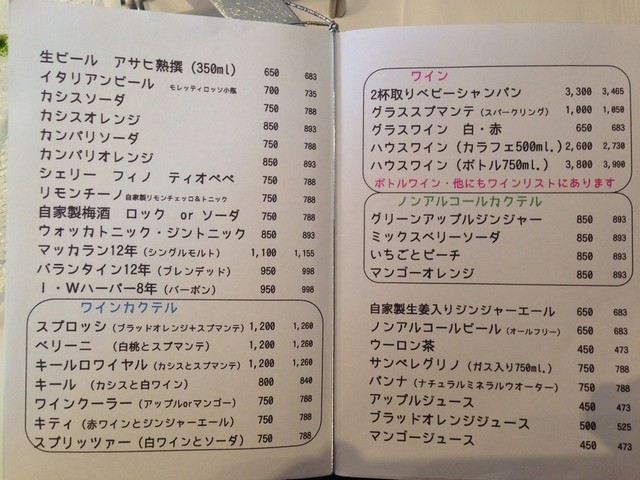 生ビール アサヒ熟撰 (350ml) 650 683
イタリアンビール モレッティロッソ小瓶 700 735
カシスソーダ 750 788
カシスオレンジ 850 893
カンパリソーダ 750 788
カンパリオレンジ 850 893
シェリー フィノ ティオペペ 750 788
リモンチーノ 自家製リモンチェッロ&トニック 750 788
自家製梅酒 ロック or ソーダ 750 788
ウォッカトニック・ジントニック 850 893
マッカラン12年 (シングルモルト) 1,100 1,155
バランタイン12年 (ブレンデッド) 950 998
I・Wハーパー8年 (バーボン) 950 998
ワインカクテル
スプロッシ (ブラッドオレンジ+スプマンテ) 1,200 1,260
ベリーニ (白桃とスプマンテ) 1,200 1,260
キールロワイヤル (カシスとスプマンテ) 1,200 1,260
キール (カシスと白ワイン) 800 840
ワインクーラー (アップルorマンゴー) 750 788
キティ (赤ワインとジンジャーエール) 750 788
スプリッツァー (白ワインとソーダ) 750 788
ワイン
2杯取りベビーシャンパン 3,300 3,465
グラススプマンテ (スパークリング) 1,000 1,050
グラスワイン 白・赤 650 683
ハウスワイン (カラフェ500ml.) 2,600 2,730
ハウスワイン (ボトル750ml.) 3,800 3,990
ボトルワイン・他にもワインリストにあります
ノンアルコールカクテル
グリーンアップルジンジャー 850 893
ミックスベリーソーダ 850 893
いちごとピーチ 850 893
マンゴーオレンジ 850 893
自家製生姜入りジンジャーエール 650 683
ノンアルコールビール (オールフリー) 650 683
ウーロン茶 450 473
サンペレグリノ (ガス入り750ml.) 750 788
パンナ (ナチュラルミネラルウオーター) 750 788
アップルジュース 450 473
ブラッドオレンジジュース 500 525
マンゴージュース 450 473